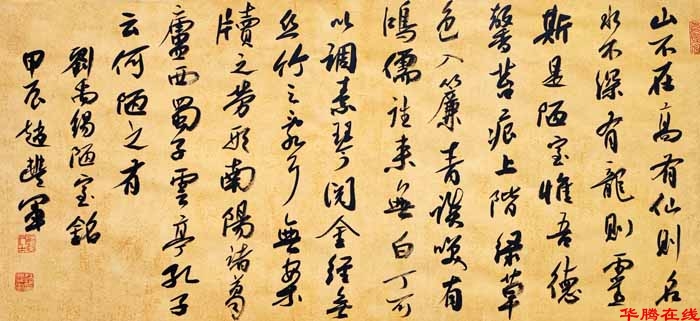 山不在高有仙則名
水不深有龍則靈
斯是陋室惟吾德
馨苔痕上階綠草
色入簾青談笑有
鴻儒往来無白丁可
以調素琴閱金經無
絲竹之亂耳無案
牘之勞形南陽諸葛
廬西蜀子雲亭孔子
云何陋之有
劉禹錫陋室銘
甲辰趙豐軍
华腾在线